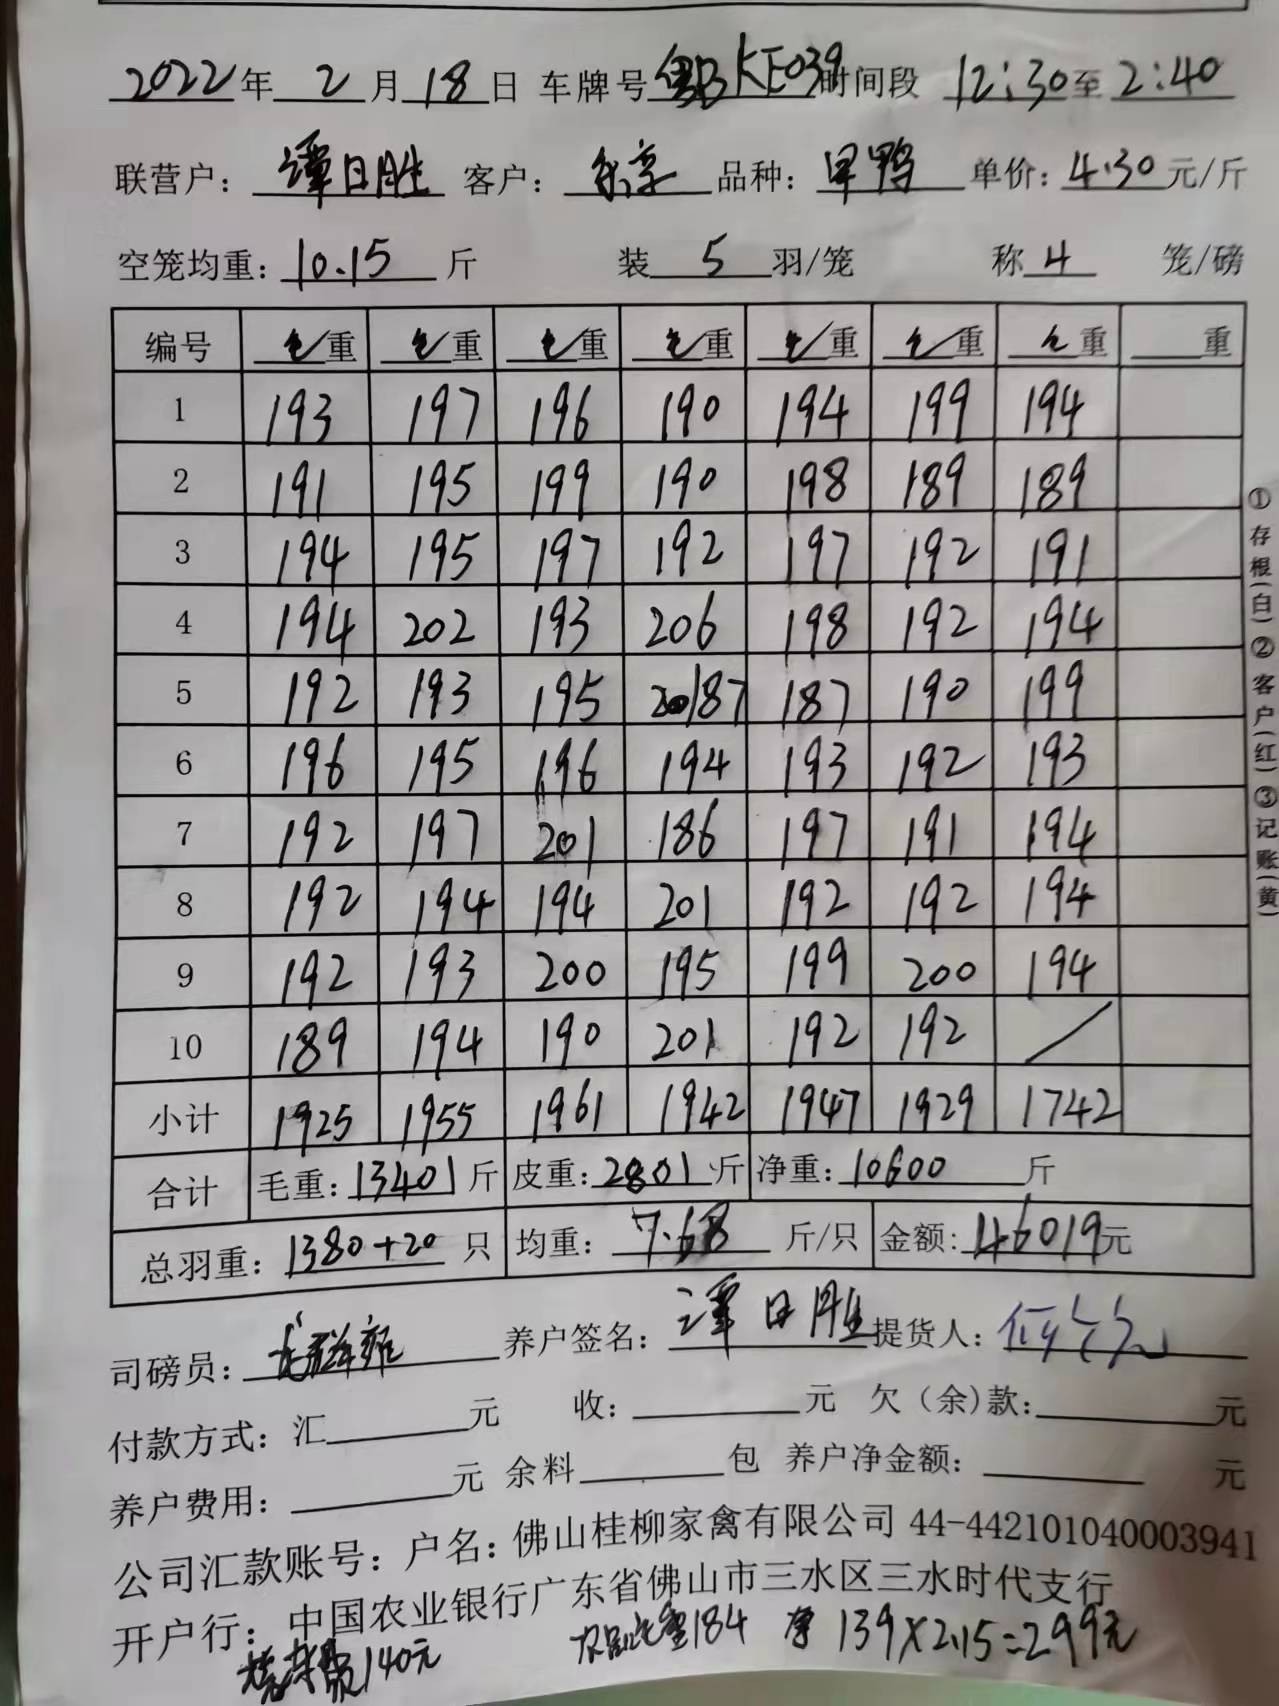 2022年 2月18日 车牌号粤BKE039时间段 12:30至2:40
联营户：谭日胜 客户：乐享 品种：旱鸭 单价：4.30元/斤
空笼均重：10.15斤 装5羽/笼 称4笼/磅
编号 毛重 毛重 毛重 毛重 毛重 毛重 毛重 重
1 193 197 196 190 194 199 194
2 191 195 199 190 198 189 189
3 194 195 197 192 197 192 191
4 194 202 193 206 198 192 194
5 192 193 195 187 187 190 199
6 196 195 196 194 193 192 193
7 192 197 201 186 197 191 194
8 192 194 194 201 192 192 194
9 192 193 200 195 199 200 194
10 189 194 190 201 192 192 /
小计 1925 1955 1961 1942 1947 1929 1742
合计 毛重：13401斤 皮重：2801斤 净重：10600斤
总羽重：1380+20只 均重：7.68斤/只 金额：46019元
司磅员： 养户签名：谭日胜 提货人：
付款方式：汇 元 收： 元 欠（余)款： 元
养户费用： 元 余料 包 养户净金额： 元
公司汇款账号：户名：佛山桂柳家禽有限公司 44-442101040003941
开户行：中国农业银行广东省佛山市三水区三水时代支行
费140元 184 净 139×2.15=299元
①存根(白)②客户(红)③记账(黄)